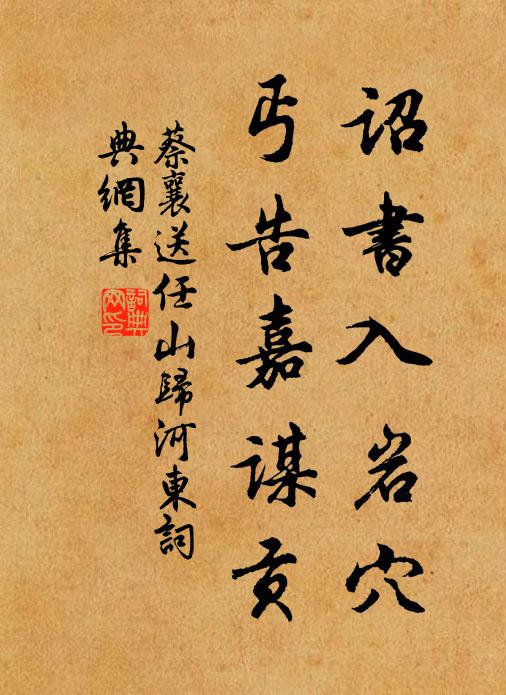 诏書入岩穴
丐告嘉謀贡
蔡襄送任山歸河東詞
典網集
詞典网印